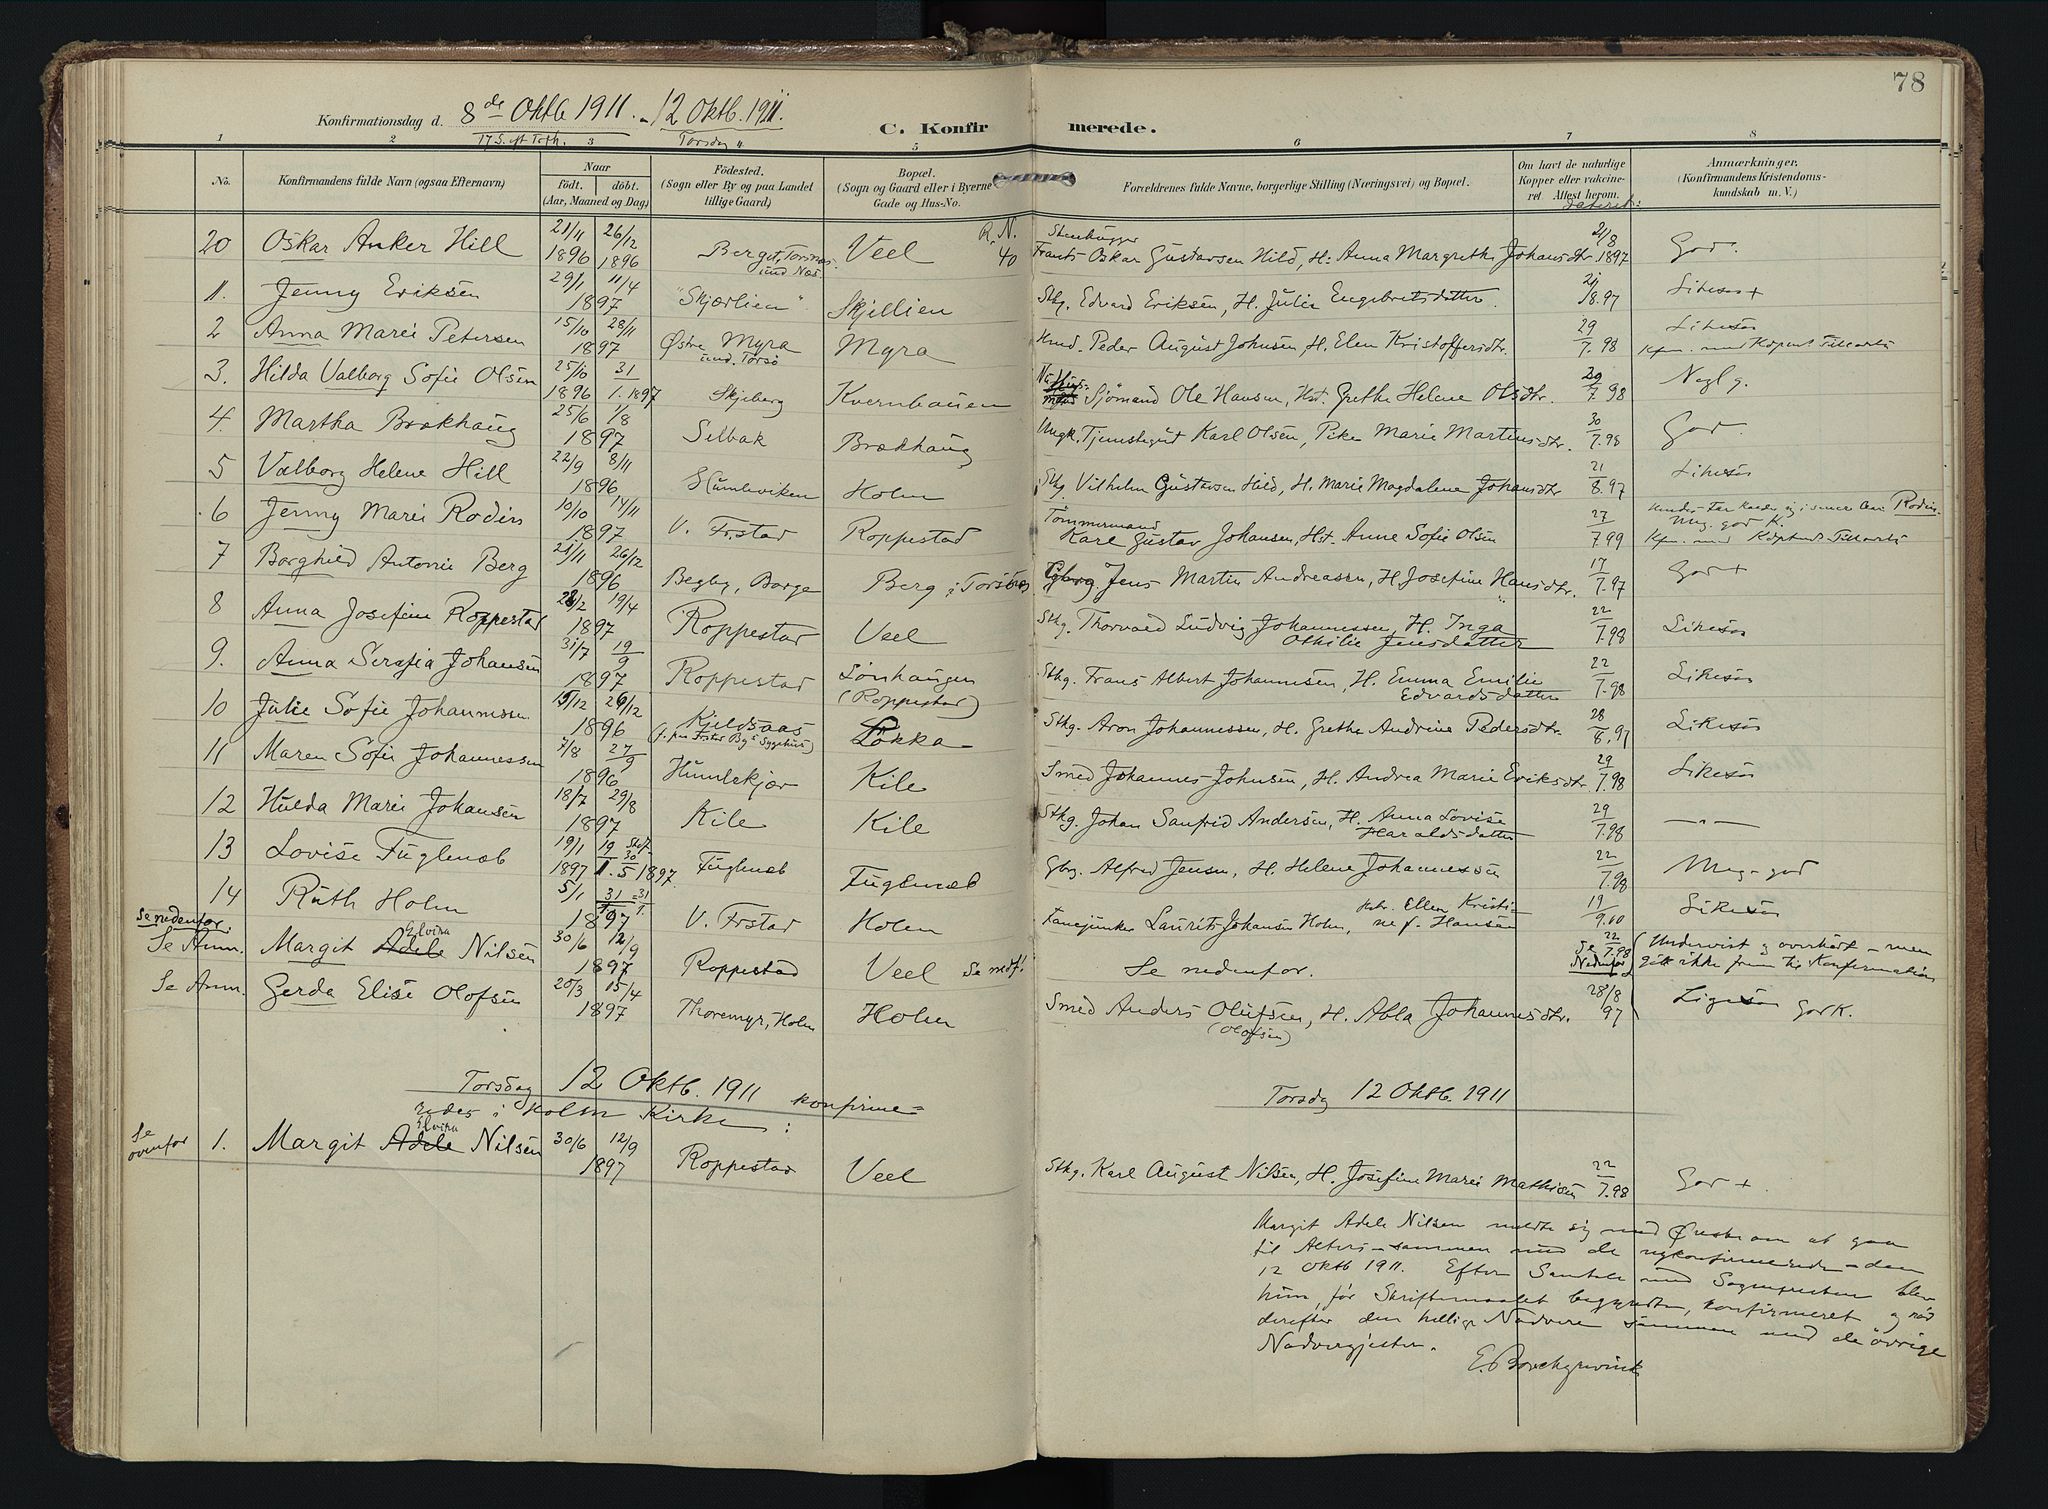 78
Konfirmationsdag d. 8de Oktb 1911. - 12 Oktb. 1911.
17 S. eft Torsdag
C. Konfirmerede.
1 2 3 4 5 6 7 8
No. Konfirmandens fulde Navn (ogsaa Efternavn) Naar født. døbt. (Aar, Maaned og Dag) Fødested. (Sogn eller By og paa Landet tillige Gaard) Bopæl. (Sogn og Gaard eller i Byerne Gade og Hus-No. Forældrenes fulde Navne, borgerlige Stilling (Næringsvei) og Bopæl. Om havt de naturlige Kopper eller vakcineret Attest herom. dateret: Anmærkninger. (Konfirmandens Kristendomskundskab m. V.)
20 Oskar Anker Hill 21/11 1896 26/12 1896 Berg Torsnæs Veel R. N. 40 Stenhugger Frants Oskar Gustavsen Hild, H. Anna Margrethe Johansdtr. 21/8 1897 God.
1. Jenny Eriksen 29/1 11/4 1897 "Skjærlien" Skjellien Sthg. Edvard Eriksen, H. Julie Engebretsdatter. 21/8.97 Likesaa +
2 Anna Marie Petersen 15/10 28/11 1897 Østre Myra und. Torsø Myra Peder August Johnsen, H. Elen Kristoffersdtr. 29/7.98 Likesaa
3. Hilda Valborg Sofie Olsen 25/10 1896 31/1. 1897 Skjeberg Kvernhauen Sjömand Ole Hansen, Grethe Helene Olsdtr. 7.98 Nogl g.
4. Martha Brækhaug 25/6 1/8 1897 Selbak Brækhaug Ungk. Tjenstegut Karl Olsen, Pike Marie Martinsdtr. 30/7.98 God.
5 Valborg Helene Hill 22/9 8/11 1896 Humleviken Holm Sthg Vilhelm Gustavsen Hild, H. Marie Magdalene Johansdtr 21/8.97 Likesaa
6 Jenny Marie Rodin 10/10 14/11 1897 V. Frstad Roppestad Tømmermand Karl Gustav Johansen, Anne Sofie Olsen 27/7.99 Rodin. Meg. god K.
7 Borghild Antonie Berg 21/11 26/12 1896 Begby, Borge Berg i Torsnæs Jens Martin Andreassen, H. Josefine Hansdtr. 17/7.97 God +
8 Anna Josefine Roppestad 28/2 19/4 1897 Roppestad Veel Sthg. Thorvald Ludvig Johannessen, H. Inga Othilie Jensdatter 22/7.98 Likesaa
9. Anna Serafia Johansen 31/7 19/9 1897 Roppestad Lønhaugen (Roppestad) Sthg. Frans Albert Johannesen, H. Emma Emilie Edvardsdatter 22/7.98 Likesaa
10 Julie Sofie Johannesen 15/12 26/12 1896 Kjeldsaas Løkka Sthg. Aron Johannessen, H. Grethe Andrine Pedersdtr. 28/8.97 Likesaa
11 Maren Sofie Johannessen 7/8 27/9 1896 Humlekjær Kile Smed Johannes Johnsen, H. Andrea Marie Eriksdtr. 29/7.98 Likesaa
12 Hulda Marie Johansen 18/7 29/8 1897 Kile Kile Sthg. Johan Sanfrid Andersen, H. Anna Lovise Haraldsdatter 29/7.98 — " —
13 Lovise Fuglenæb 19/1 1897 30/5 1897. Fuglenæb Fuglenæb Gbrg. Alfred Jensen, H. Helene Johannessen 22/7.98 Meg. god
14 Ruth Holm 5/1 31/1 = 31/1. 1897 V. Frstad Holm Laurits Johansen Holm, Ellen Kristine f. Hansen 19/9.00 Likesaa
Se nedenfor. Se Anm. Margit Adele Elvira Nilsen 30/6 12/9 1897 Roppestad Veel Se nedf! Se nedenfor. 22/7.98 Se Nedenfor Undervist og overhørt - men gik ikke frem til Konfirmation
Se Anm. Gerda Elise Olofsen 20/3 15/4 1897 Thoremyr, Holm Holm Smed Anders Olufsen, (Olofsen) H. Abla Johannesdtr. 28/8 97 Ligesaa God K.
Torsdag 12 Oktb. 1911 konfirmeredes i Holm Kirke:
Torsdag 12 Oktb. 1911
Se ovenfor 1. Margit Adele Elvira Nilsen 30/6 12/9 1897 Roppestad Veel Sthg. Karl August Nilsen, H. Josefine Marie Mathisen 22/7.98 God +.
Margit Adele Nilsen meldte sig med Ønske om at gaa
til Alters - sammen med de nykonfirmerede - den
12 Oktb 1911. Efter Samtale med Sognepresten blev
hun, før Skriftemaalet begyndte, konfirmeret og nød
derefter den hellige Nadvere sammen med de øvrige
Nadvergjester.
E. Borchgrevink